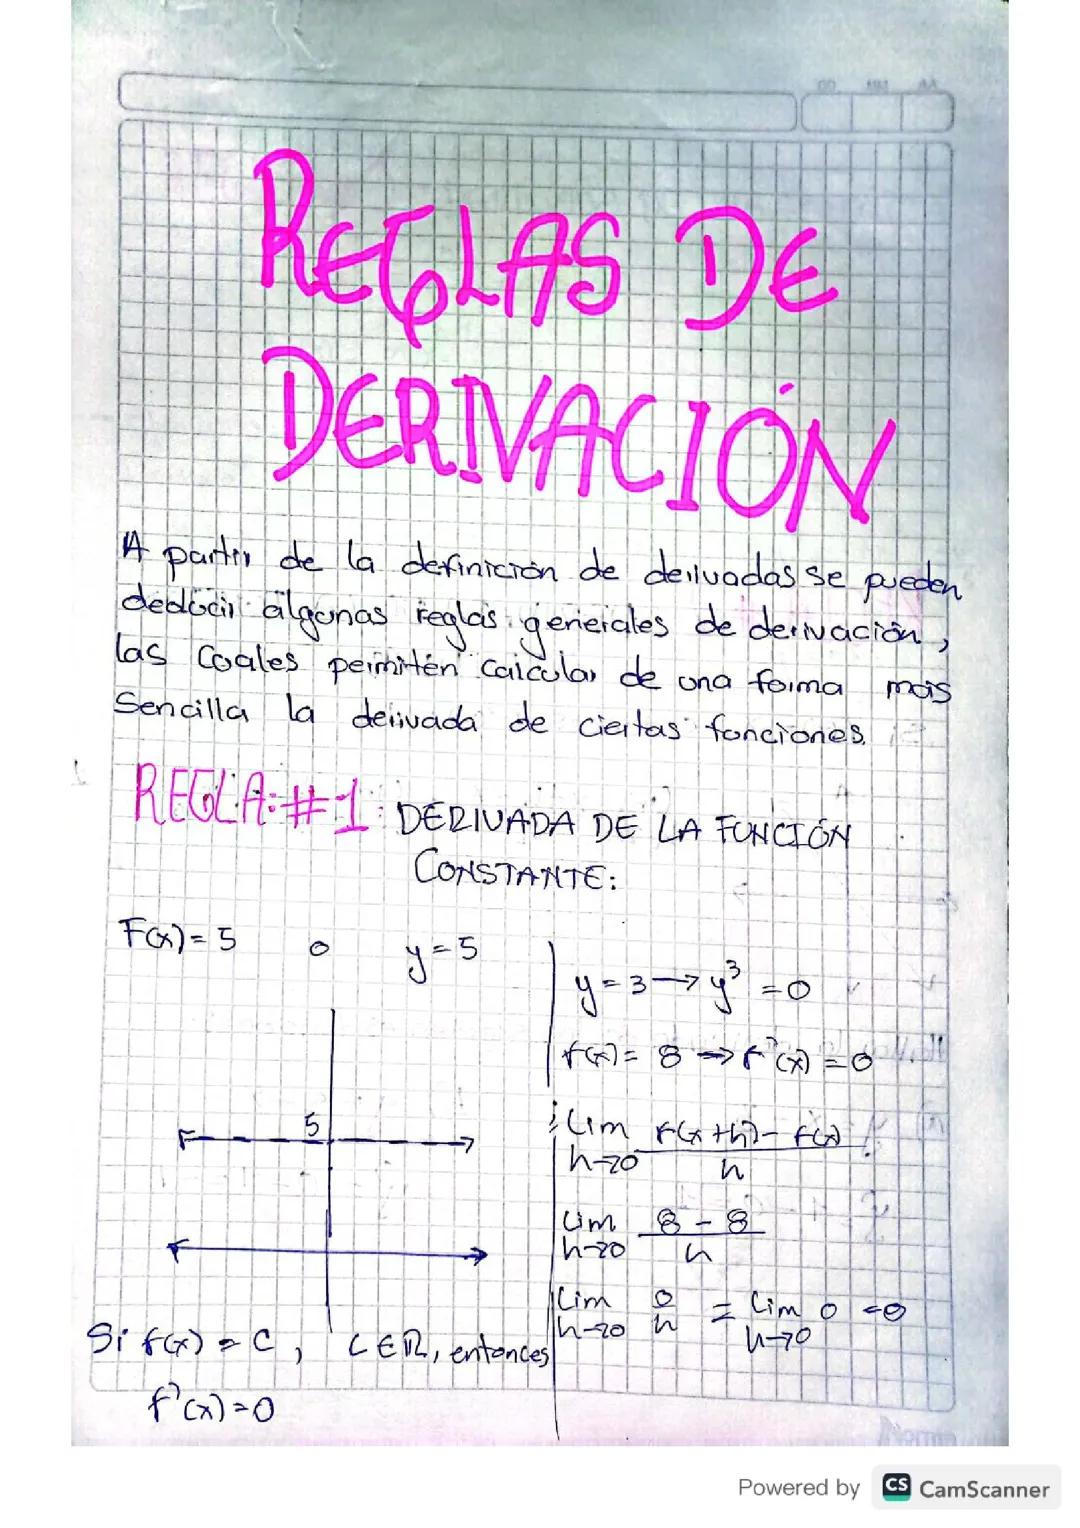 REGLAS DE
DERIVACIÓN
A partir de la definición de derivadas se pueden
deducir algunas reglas generales de derivación,
las cuales permiten calcular de una forma más
Sencilla la derivada de ciertas funciones.
REGLA: #1: DERIVADA DE LA FUNCIÓN
CONSTANTE:
F(x) = 5 o y = 5
5
Si f(x) = C, C ∈ ℝ, entonces
f'(x) = 0
y = 3 → y³ = 0
f(x) = 8 → f'(x) = 0
Lim f(x+h) - f(x)
h→0 h
Lim 8 - 8
h→0 h
Lim 0 = Lim 0 = 0
h→0 h h→0
Norma
Powered by CS CamScanner